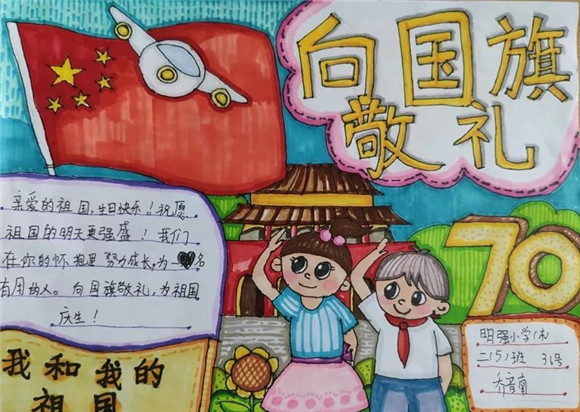 向国旗
敬礼
亲爱的祖国,生日快乐!祝愿
祖国的明天更强盛!我们
在你的怀抱里努力成长,为 名
有用的人。向国旗敬礼,为祖国
庆生!
70
明强小学
二(5)班 36号
我和我的
祖国